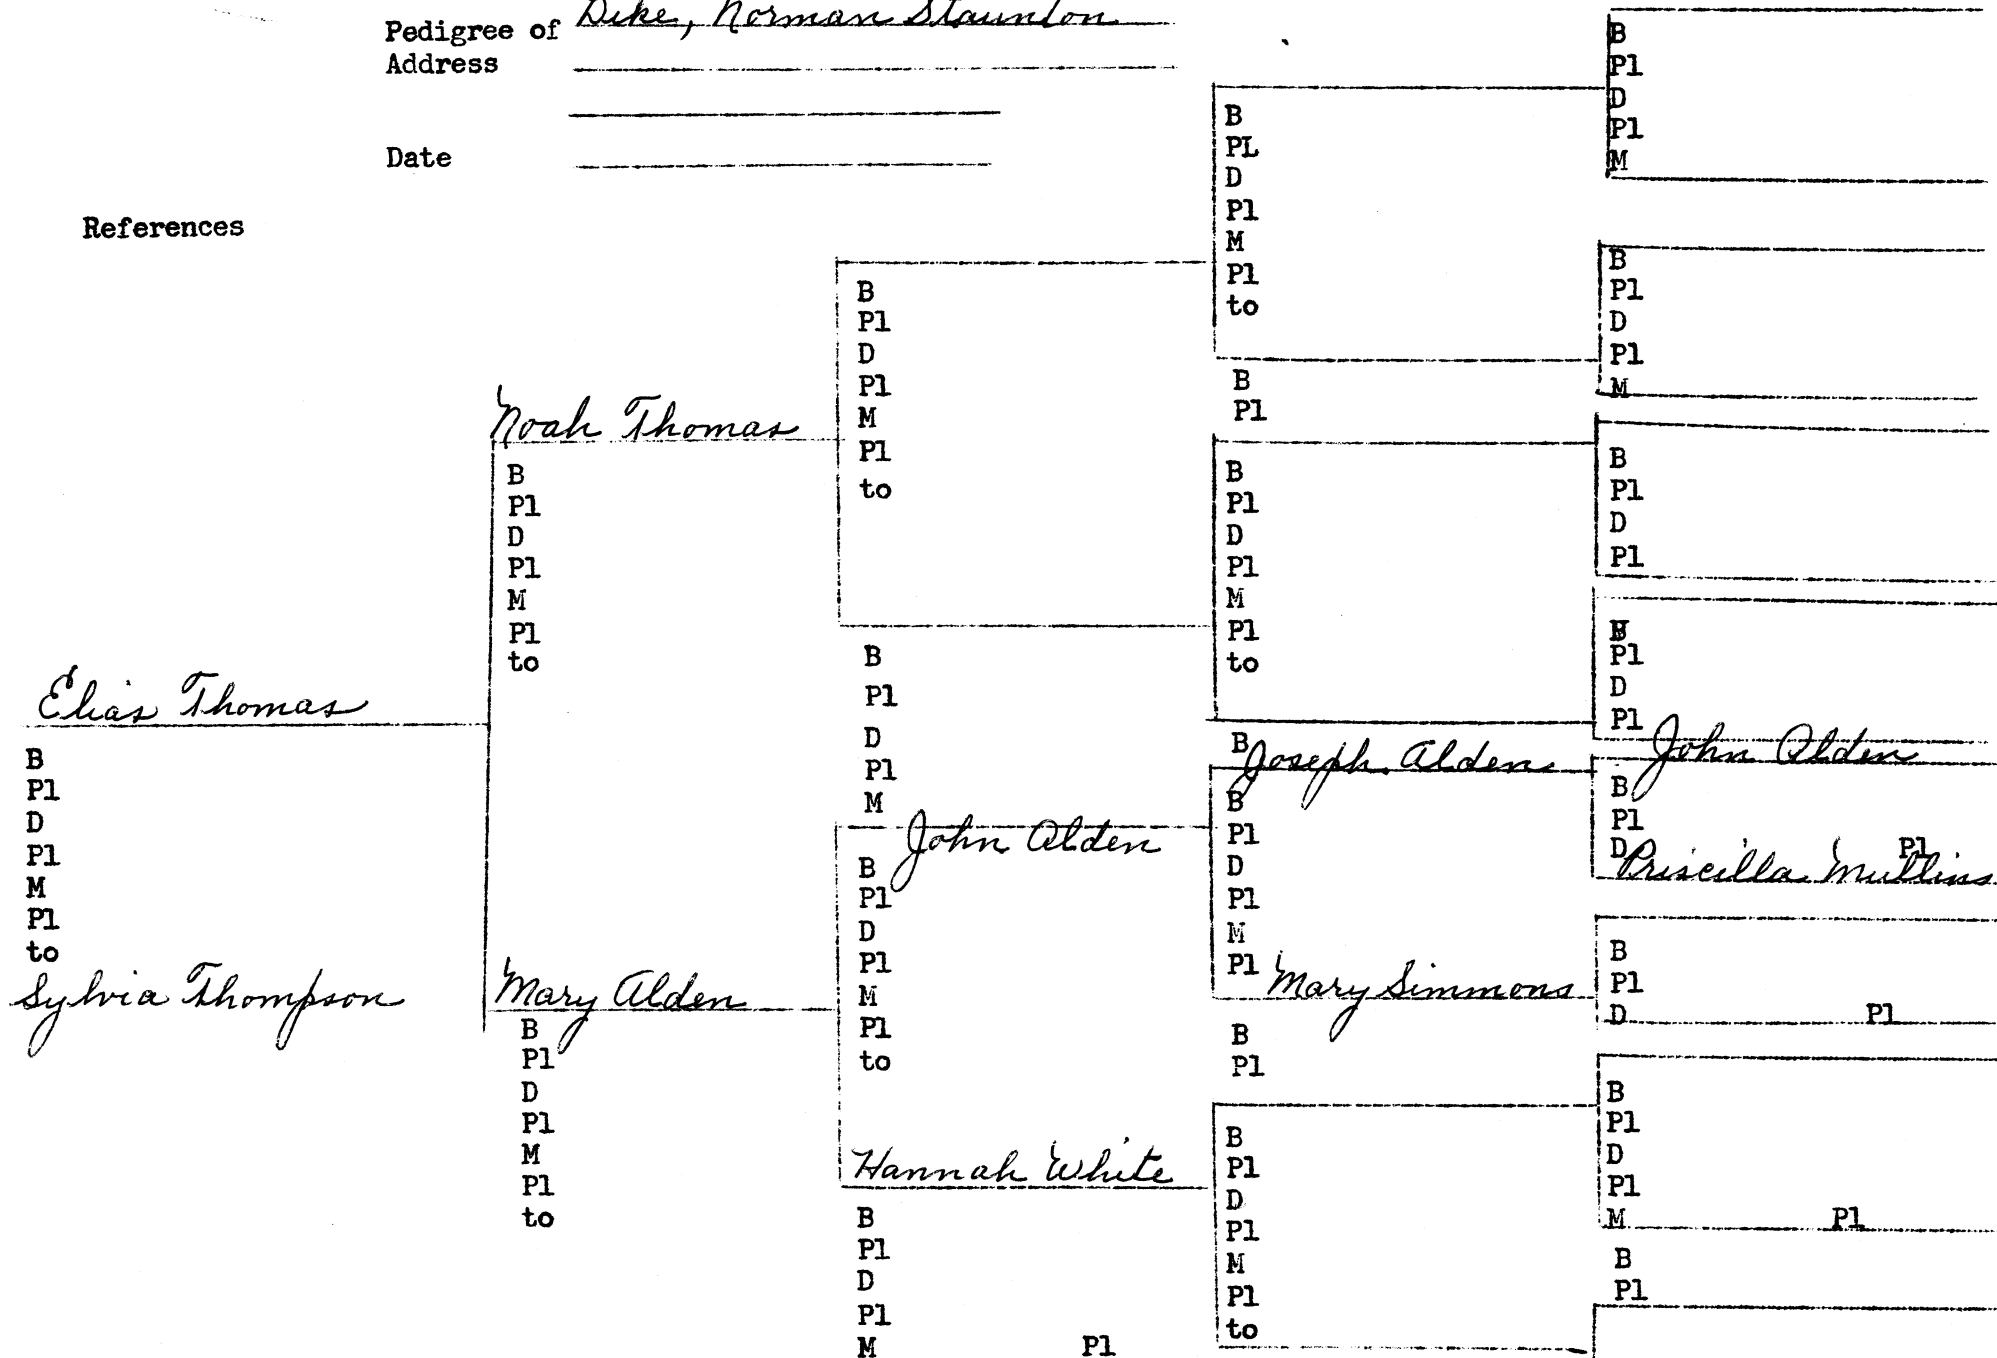 Pedigree of Dike, Norman Staunton
Address
Date
References
Elias Thomas
B
Pl
D
Pl
M
Pl
to
Sylvia Thompson
Noah Thomas
B
Pl
D
Pl
M
Pl
to
Mary Alden
B
Pl
D
Pl
M
Pl
to
B
Pl
D
Pl
M
Pl
to
B
Pl
D
Pl
M
John Alden
B
Pl
D
Pl
M
Pl
to
Hannah White
B
Pl
D
Pl
M Pl
B
PL
D
Pl
M
Pl
to
B
Pl
B
Pl
D
Pl
M
Pl
to
B
Joseph Alden
B
Pl
D
Pl
M
Pl
Mary Simmons
B
Pl
B
Pl
D
Pl
M
Pl
to
B
Pl
D
Pl
M
B
Pl
D
Pl
M
B
Pl
D
Pl
B
Pl
D
Pl
John Alden
B
Pl
D Pl
Priscilla Mullins
B
Pl
D Pl
B
Pl
D
Pl
M Pl
B
Pl